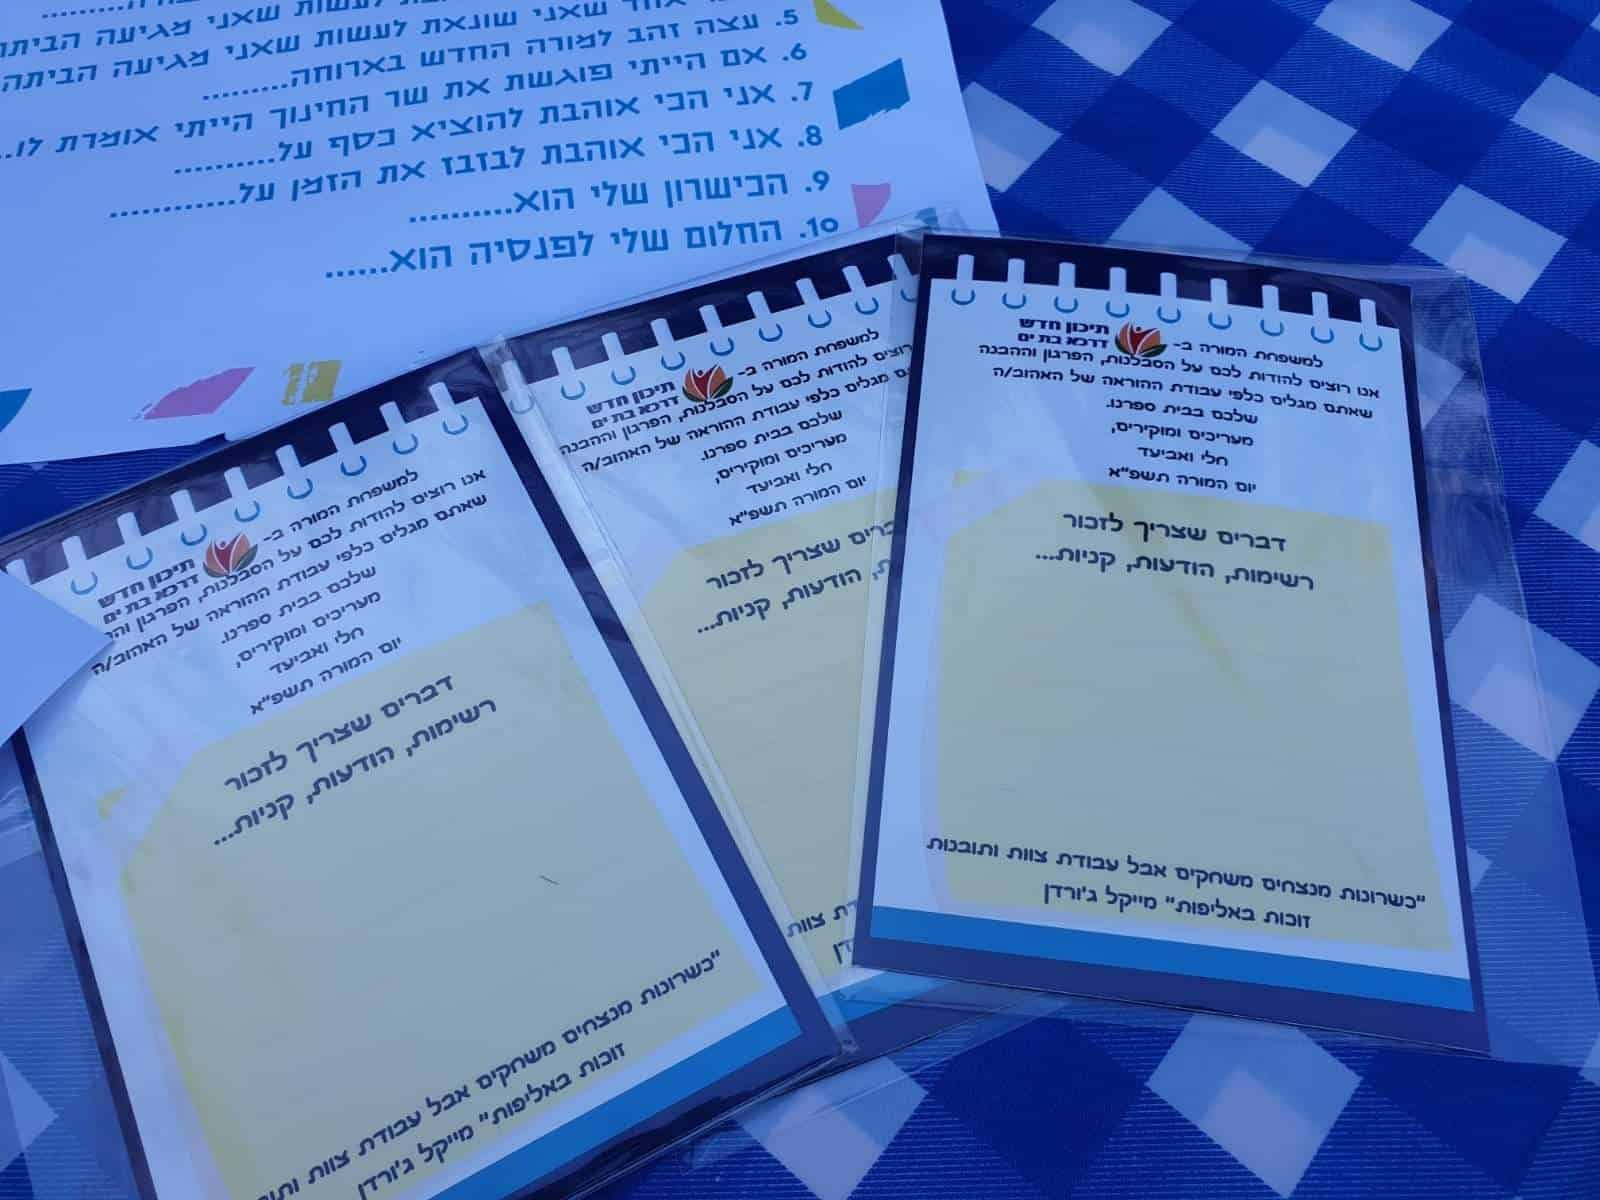 לעשות שאני מגיעה הביתה
שאני שונאת לעשות שאני מגיעה הביתה
5. עצה זהב למורה החדש בארוחה.........
6. אם הייתי פוגשת את שר החינוך הייתי אומרת לו..
7. אני הכי אוהבת להוציא כסף על..........
8. אני הכי אוהבת לבזבז את הזמן על............
9. הכישרון שלי הוא..........
10. החלום שלי לפנסיה הוא......
למשפחת המורה ב- תיכון חדש
דרכא בת ים
אנו רוצים להודות לכם על הסבלנות, הפרגון
שאתם מגלים כלפי עבודת ההוראה של האהוב/ה
שלכם בבית ספרנו.
מעריכים ומוקירים,
חלי ואביעד
יום המורה תשפ"א
דברים שצריך לזכור
רשימות, הודעות, קניות...
"כשרונות מנצחים משחקים אבל עבודת צוות
זוכות באליפות" מייקל ג'ורדן
למשפחת המורה ב- תיכון חדש
דרכא בת ים
רוצים להודות לכם על הסבלנות, הפרגון וההבנה
מגלים כלפי עבודת ההוראה של האהוב/ה
שלכם בבית ספרנו.
מעריכים ומוקירים,
חלי ואביעד
יום המורה תשפ"א
שצריך לזכור
הודעות, קניות...
צוות
למשפחת המורה ב- תיכון חדש
דרכא בת ים
אנו רוצים להודות לכם על הסבלנות, הפרגון וההבנה
שאתם מגלים כלפי עבודת ההוראה של האהוב/ה
שלכם בבית ספרנו.
מעריכים ומוקירים,
חלי ואביעד
יום המורה תשפ"א
דברים שצריך לזכור
רשימות, הודעות, קניות...
"כשרונות מנצחים משחקים אבל עבודת צוות ותובנות
זוכות באליפות" מייקל ג'ורדן